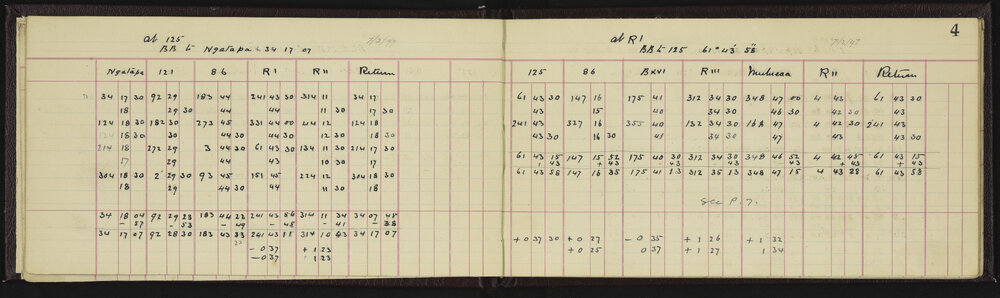 4
at 125
BB to Ngatapa 34 17 07
Ngatapa 121 86 RI RII Return
34 17 30 92 29 183 44 241 43 30 314 11 34 17
18 29 30 44 44 11 30 17 30
124 18 30 182 30 273 45 331 44 00 44 12 124 18
18 30 30 44 30 44 30 12 30 18 30
214 18 272 29 3 44 30 61 43 30 134 11 30 214 17 30
17 29 44 43 10 30 17
304 18 30 2 29 30 93 45 151 45 224 12 304 18 30
18 29 44 30 44 11 30 18
34 18 04 92 29 23 183 44 22 241 43 56 314 11 34 34 07 45
34 17 07 92 28 30 183 43 33 314 10 43 34 17 07
- 0 37 + 1 23
- 0 37 + 1 23
at RI
BB to 125 61° 43' 58"
125 86 BXVI RIII RII Return
61 43 30 147 16 175 41 312 34 30 348 47 00 4 43 61 43 30
43 15 40 34 30 46 30 42 30 43
241 43 327 16 355 40 132 34 30 168 47 4 42 30 241 43
43 30 16 30 41 34 30 47 43 30 43 30
61 43 15 147 15 52 175 40 30 312 34 30 348 46 52 4 42 45 61 43 15
+ 43 + 43 43 43 + 43 + 43 + 43
61 43 58 147 16 35 175 41 13 312 35 13 348 47 15 4 43 28 61 43 58
See P. 7.
+ 0 37 30 + 0 27 - 0 35 + 1 26 + 1 32
+ 0 25 0 37 + 1 27 1 34